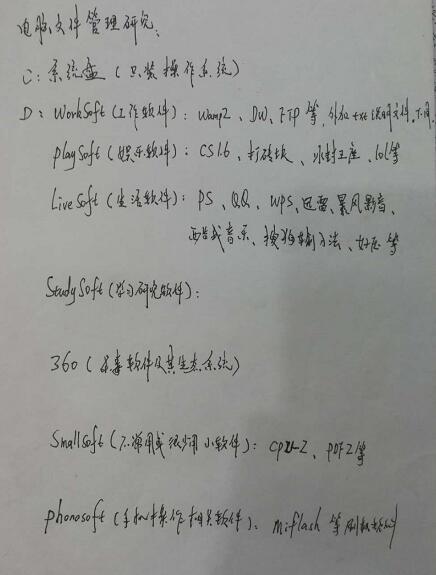 电脑文件管理研究:
C: 系统盘 (只装操作系统)
D: WorkSoft (工作软件): Wamp2、DW、FTP等, 外加txt说明文件.下同
PlaySoft (娱乐软件): CS1.6、打砖块、冰封王座、lol等
LiveSoft (生活软件): PS、QQ、WPS、迅雷、暴风影音、
酷我音乐、搜狗输入法、好压等
StudySoft (学习研究软件):
360 (杀毒软件及其生态系统)
SmallSoft (不常用或很少用小软件): CPU-Z、PDF2等
phonosoft (手机操作相关软件): miflash等刷机软件